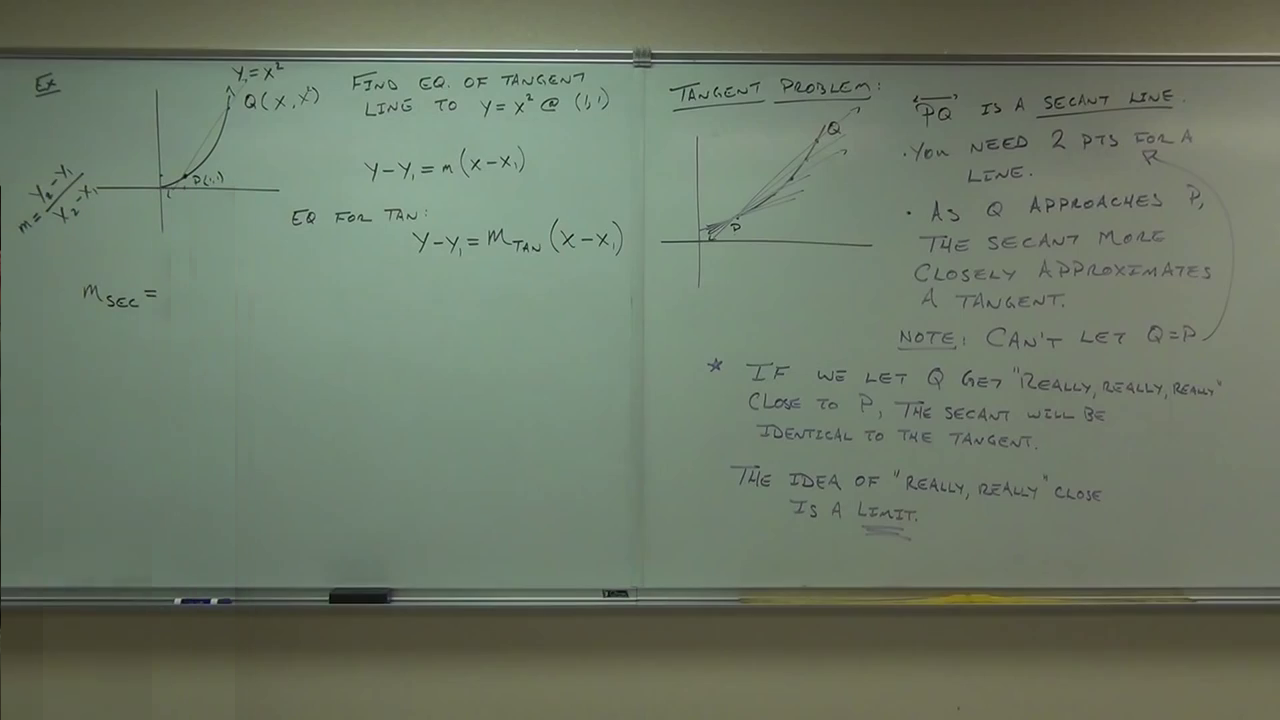 Ex
Y₁=X²
Q(X,X²)
P(1,1)
m = Y₂-Y₁ / X₂-X₁
FIND EQ. OF TANGENT
LINE TO Y=X² @ (1,1)
Y-Y₁=m(X-X₁)
EQ FOR TAN:
Y-Y₁=M_TAN(X-X₁)
M_SEC=
TANGENT PROBLEM:
Q
P
"PQ" IS A SECANT LINE.
·YOU NEED 2 PTS FOR A
LINE.
· AS Q APPROACHES P,
THE SECANT MORE
CLOSELY APPROXIMATES
A TANGENT.
NOTE: CAN'T LET Q=P
* IF WE LET Q GET "REALLY, REALLY, REALLY"
CLOSE TO P, THE SECANT WILL BE
IDENTICAL TO THE TANGENT.
THE IDEA OF "REALLY, REALLY" CLOSE
IS A LIMIT.